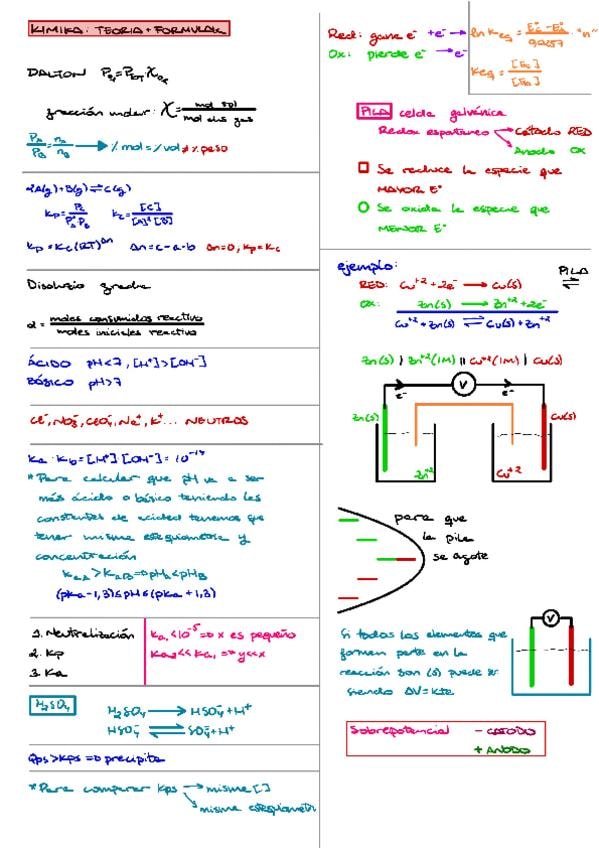 KIMIKA: TEORIA + FORMULAK
DALTON P_A = P_TOT · X_A
fracción molar: X = mol sol / mol dis gas
P_A/P_B = n_A/n_B → % mol = % vol ≠ % peso
aA(g) + B(g) ⇌ C(g)
Kp = P_C / P_A^a P_B Kc = [C] / [A]^a [B]
Kp = Kc (RT)^Δn Δn = c-a-b Δn=0, Kp=Kc
α = moles consumidos reactivo / moles iniciales reactivo
ÁCIDO pH<7, [H+]>[OH-]
BÁSICO pH>7
Cl-, NO3-, ClO4-, Na+, K+... NEUTROS
Ka · Kb = [H+] [OH-] = 10^-14
* Para calcular que pH va a ser
más ácido o básico teniendo las
constantes de acidez tenemos que
tener misma estequiometría y
concentración
KaA > KaB ⇒ pHA < pHB
(pKa - 1,3) ≤ pH ≤ (pKa + 1,3)
1. Neutralización
2. Kp
3. Ka
Ka1 < 10^-5 ⇒ x es pequeño
Ka2 << Ka1 ⇒ y<<x
H2SO4
H2SO4 → HSO4- + H+
HSO4- ⇌ SO4- + H+
Qps > Kps ⇒ precipita
* Para comparar Kps → misma [ ]
misma estequiometri
Red: gana e- +e- →
Ox: pierde e- → e-
ln Keq = · "n"
Keq =
PILA celda galvánica
Redox espontáneo Cátodo RED
Ánodo OX
Se reduce la especie que
MAYOR E°
Se oxida la especie que
MENOR E°
ejemplo:
PILA
⇌
RED: Cu+2 + 2e- → Cu(s)
OX: Zn(s) → Zn+2 + 2e-
Cu+2 + Zn(s) ⇌ Cu(s) + Zn+2
Zn(s) | Zn+2 (1M) || Cu+2 (1M) | Cu(s)
V
e- e-
Zn(s) Cu(s)
Zn+2 Cu+2
para que
la pila
se agote
V
Si todos los elementos que
forman parte en la
reacción son (s) puede ir
siendo ΔV = Kte
Sobrepotencial - CATODO
+ ANODO